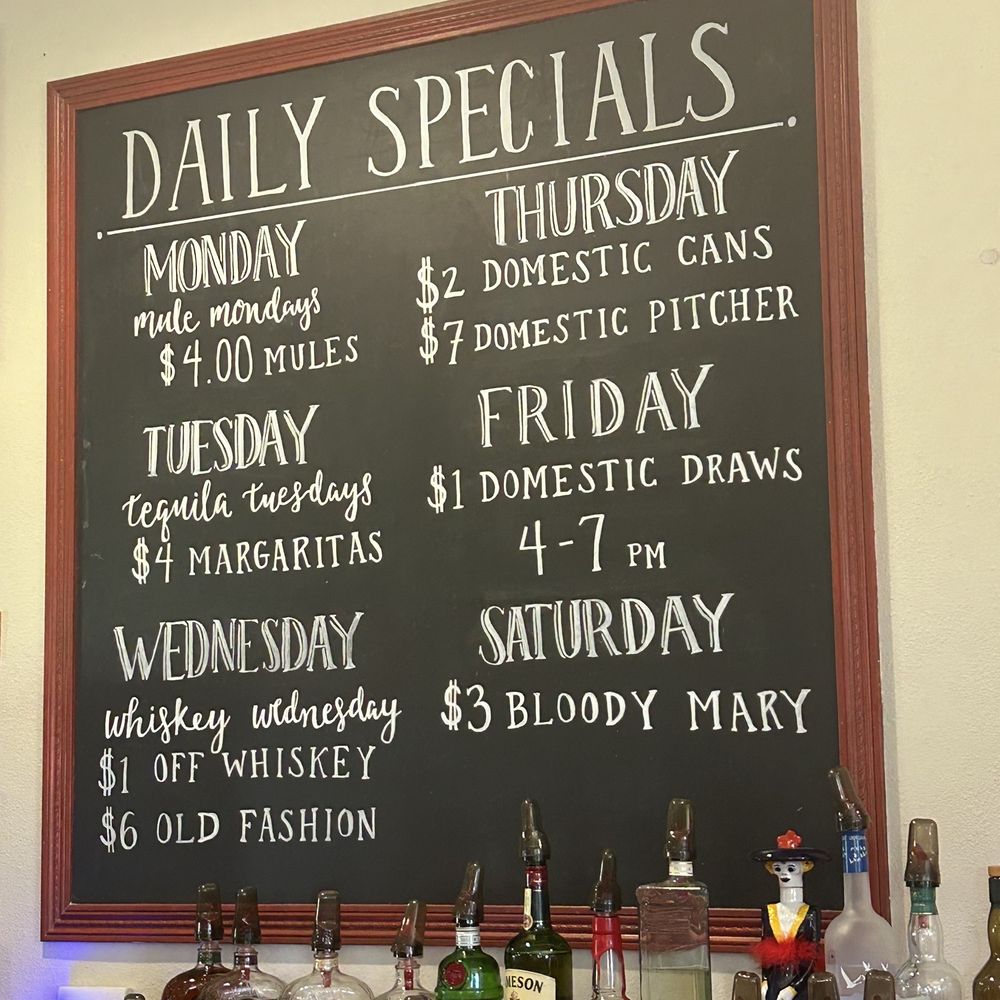 DAILY SPECIALS
MONDAY
mule mondays
$4.00 MULES
TUESDAY
tequila tuesdays
$4 MARGARITAS
WEDNESDAY
whiskey wednesday
$1 OFF WHISKEY
$6 OLD FASHION
THURSDAY
$2 DOMESTIC CANS
$7 DOMESTIC PITCHER
FRIDAY
$1 DOMESTIC DRAWS
4-7 PM
SATURDAY
$3 BLOODY MARY
MESON